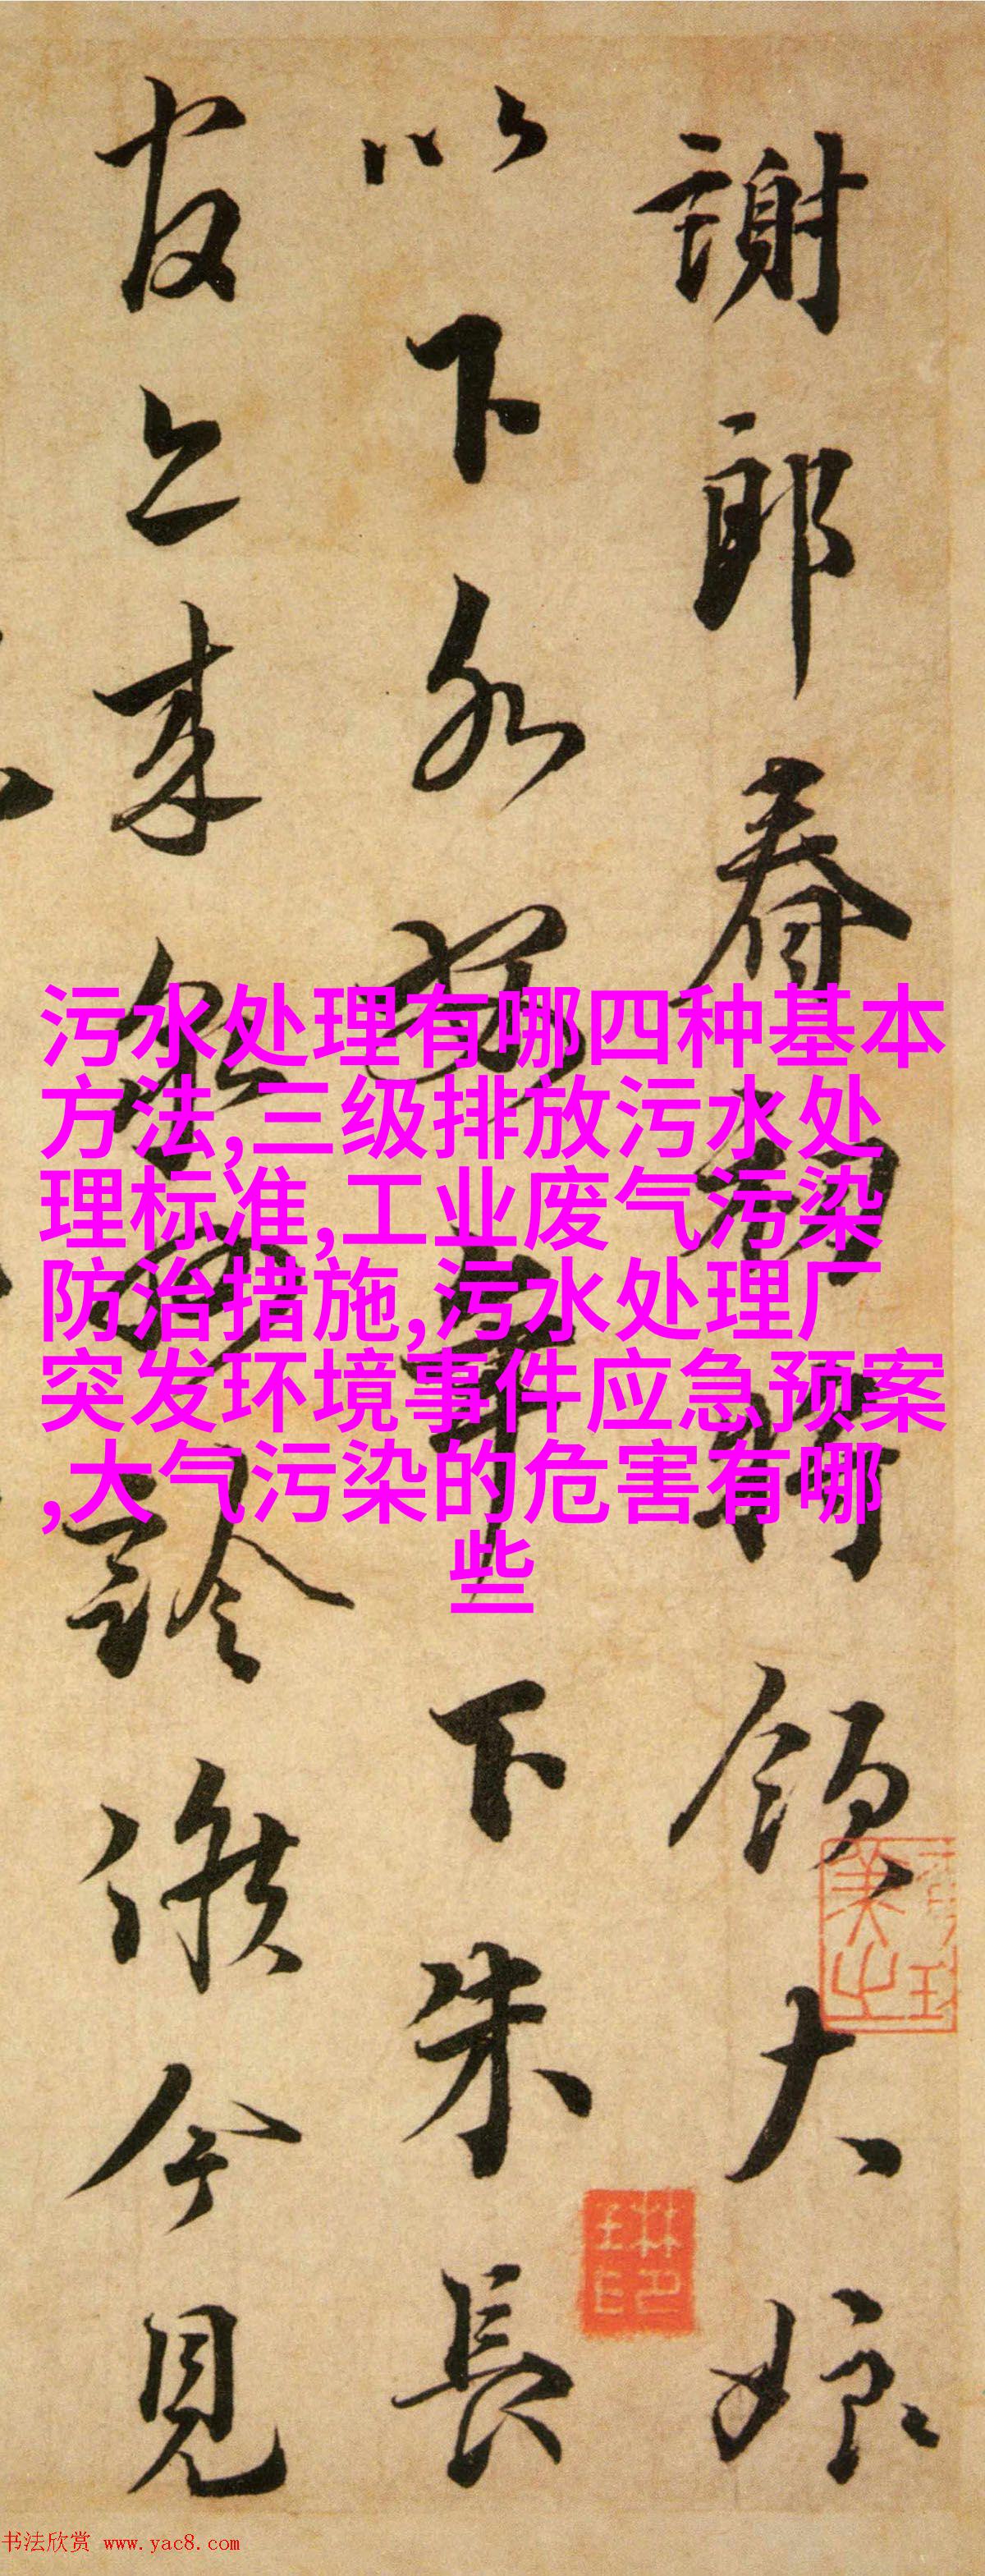 謝郎春初將領大娘
以下永
下朱長
官上來
診候今見
污水处理有哪四种基本
方法,三级排放污水处
理标准,工业废气污染
防治措施,污水处理厂
突发环境事件应急预案
,大气污染的危害有哪
些
书法欣赏 www.yac8.com